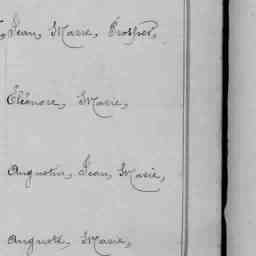 Jean, Marie, Prosper,
Eléonore, Marie,
Augustin, Jean, Marie,
Marie,